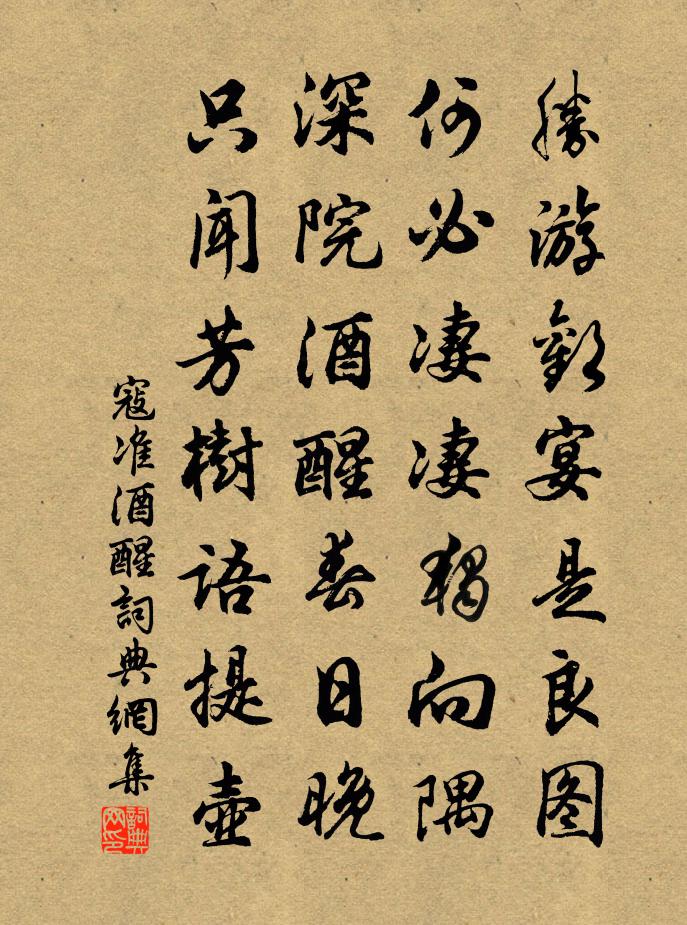 勝游歡宴是良图
何必凄凄獨向隅
深院酒醒春日晚
只闻芳樹語提壺
寇准酒醒詞典網集
詞典网印